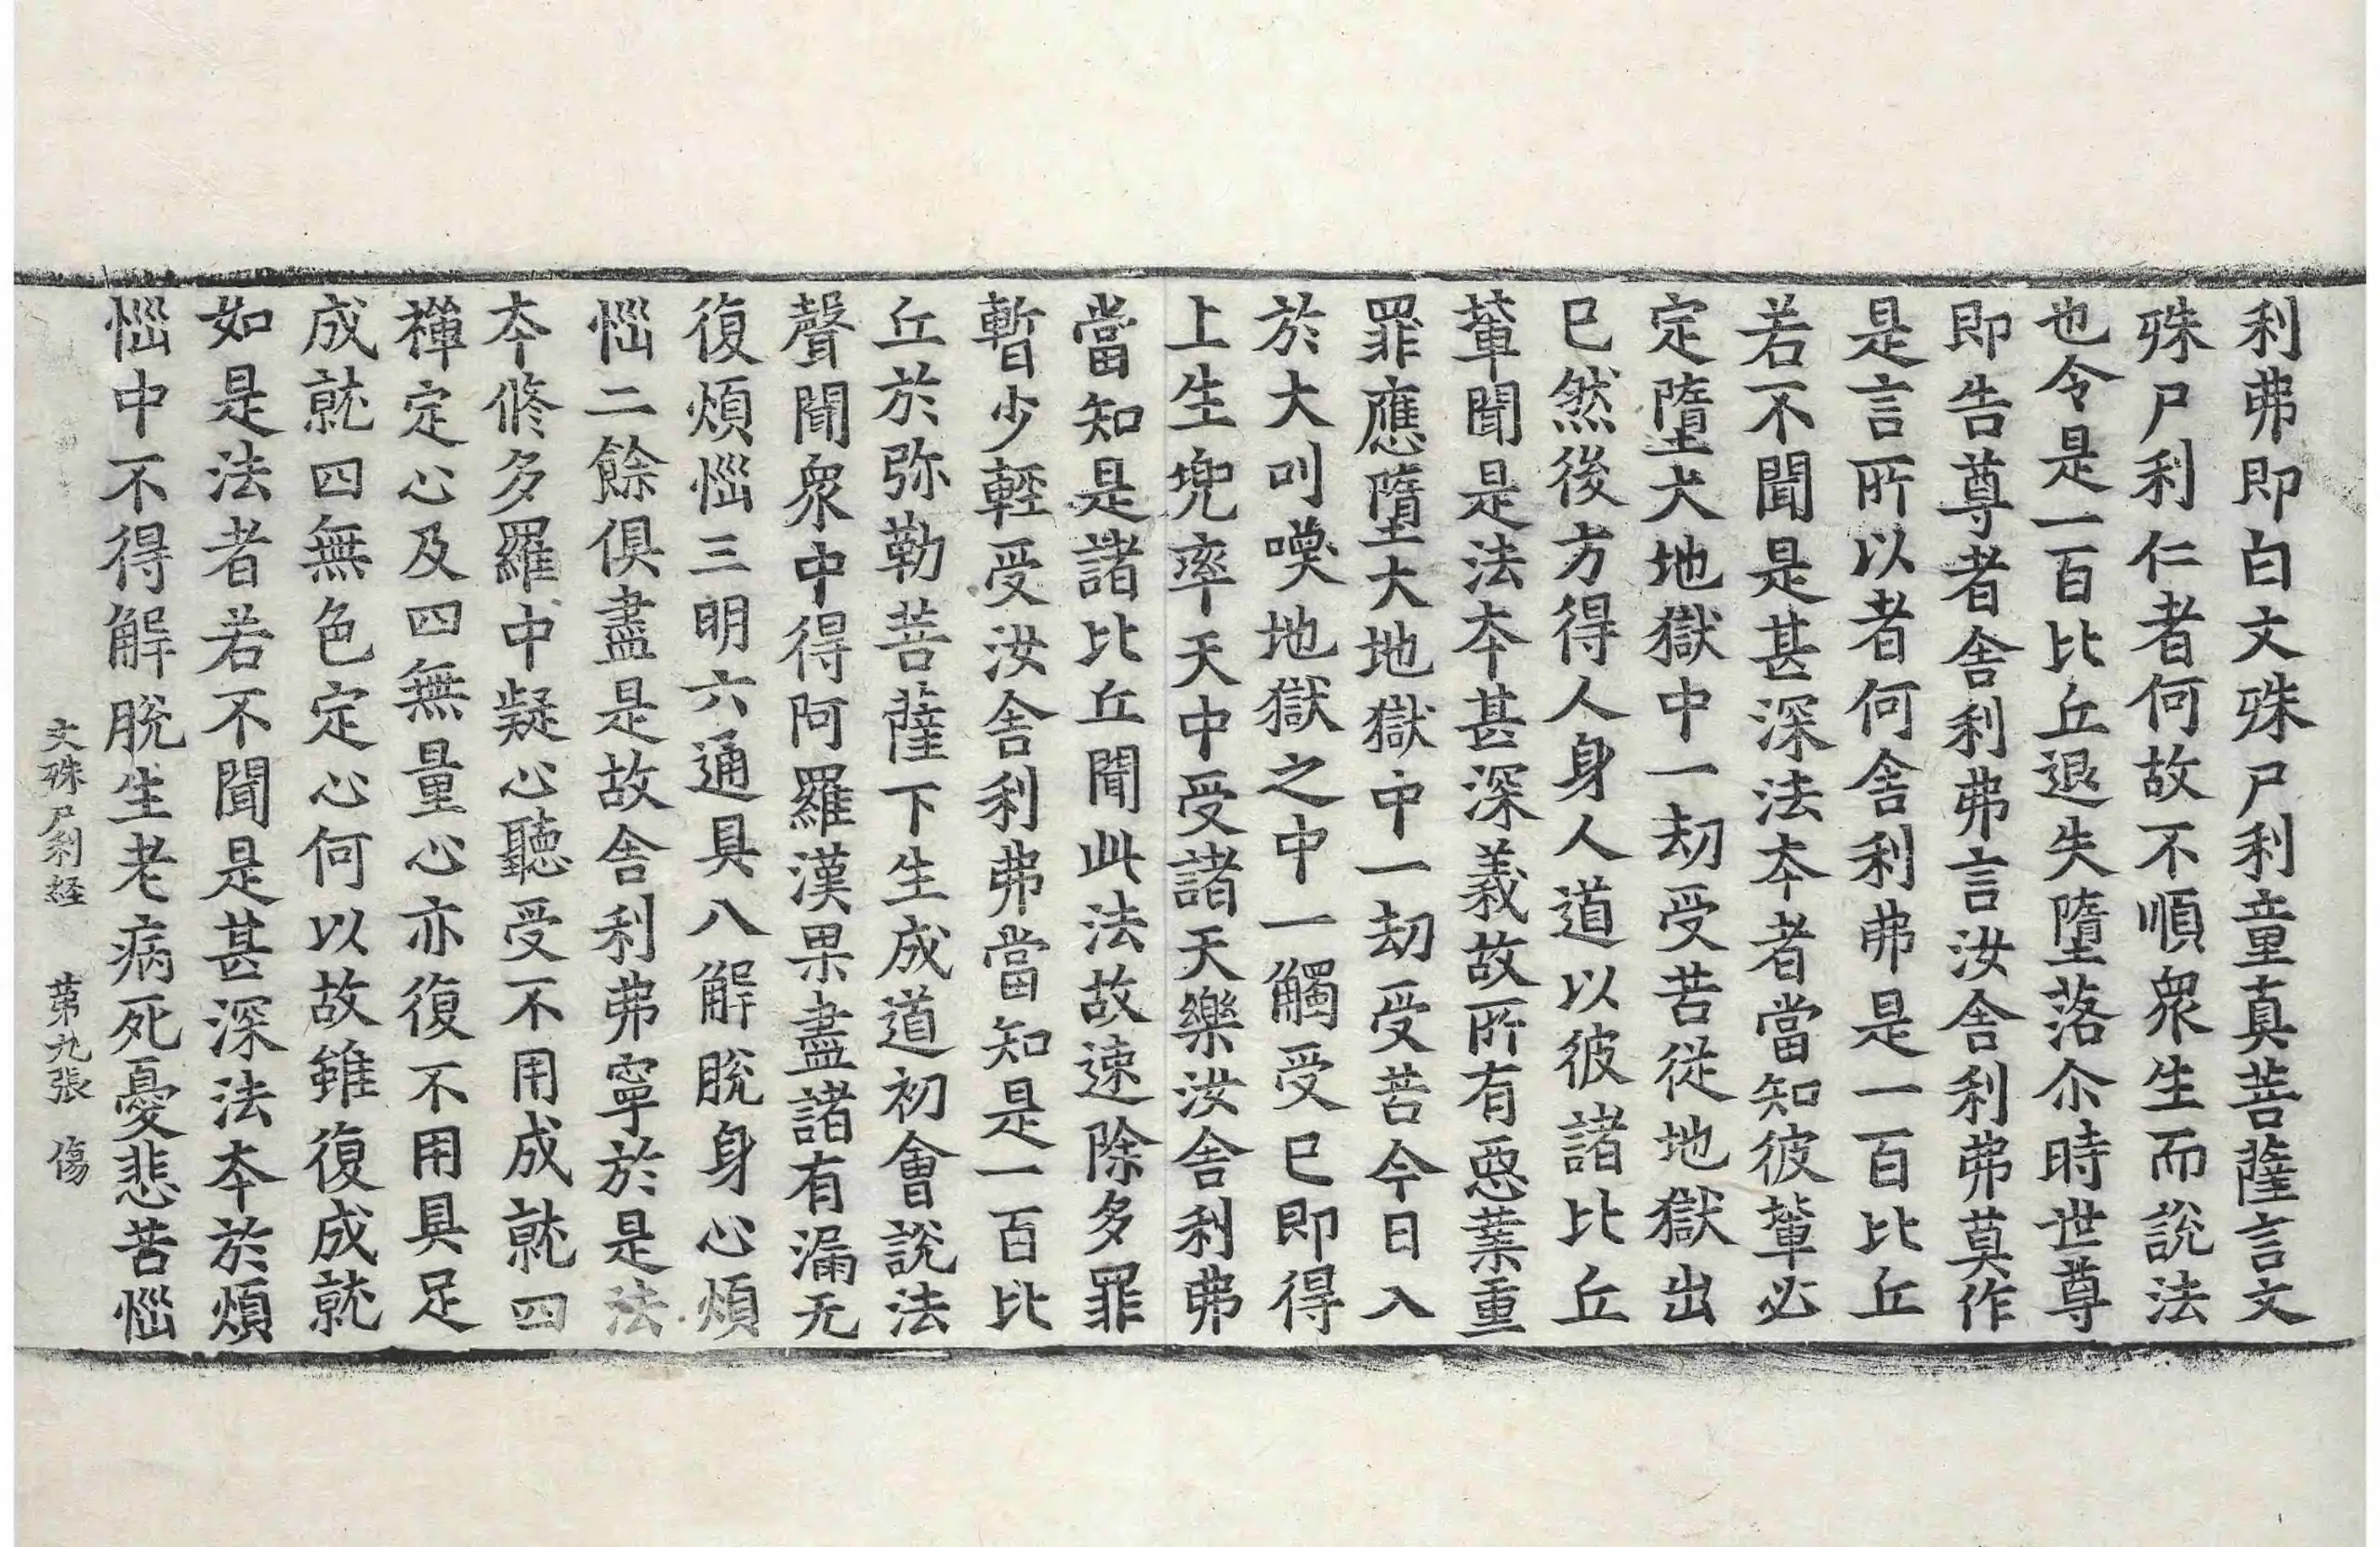 利弗即白文殊尸利童真菩薩言文
殊尸利仁者何故不順衆生而說法
也令是一百比丘退失墮落尒時世尊
即告尊者舍利弗言汝舍利弗莫作
是言所以者何舍利弗是一百比丘
若不聞是甚深法夲者當知彼輩必
定墮犬地獄中一劫受苦從地獄出
已然後方得人身人道以彼諸比丘
輩聞是法夲甚深義故所有惡業重
罪應墮大地獄中一劫受苦今日入
於大叫喚地獄之中一觸受已即得
上生兜率天中受諸天樂汝舍利弗
當知是諸比丘聞此法故速除多罪
暫少輕受汝舍利弗當知是一百比
丘於弥勒菩薩下生成道初會說法
聲聞衆中得阿羅漢果盡諸有漏无
復煩惱三明六通具八解脫身心煩
惱二餘俱盡是故舍利弗寧於是法
夲修多羅中疑心聽受不用成就四
禪定心及四無量心亦復不用具足
成就四無色定心何以故雖復成就
如是法者若不聞是甚深法夲於煩
惱中不得解脫生老病死憂悲苦惱
文殊尸利經 第九張 傷